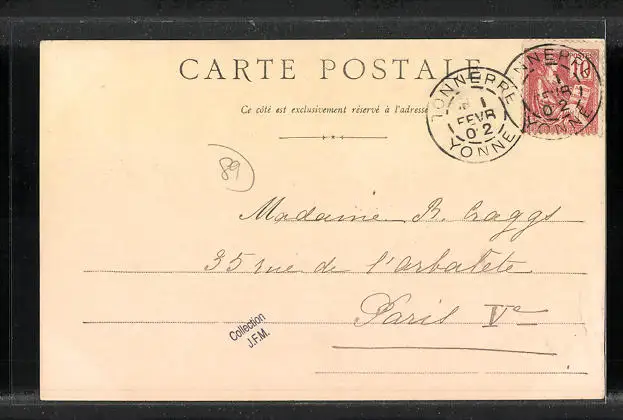 CARTE POSTALE
Ce côté est exclusivement réservé à l'adresse
TONNERRE
1
FEVR
02
YONNE
10
POSTES
89
Madame B. Craggs
35 rue de l'arbalète
Paris Ve
Collection
J.F.M.